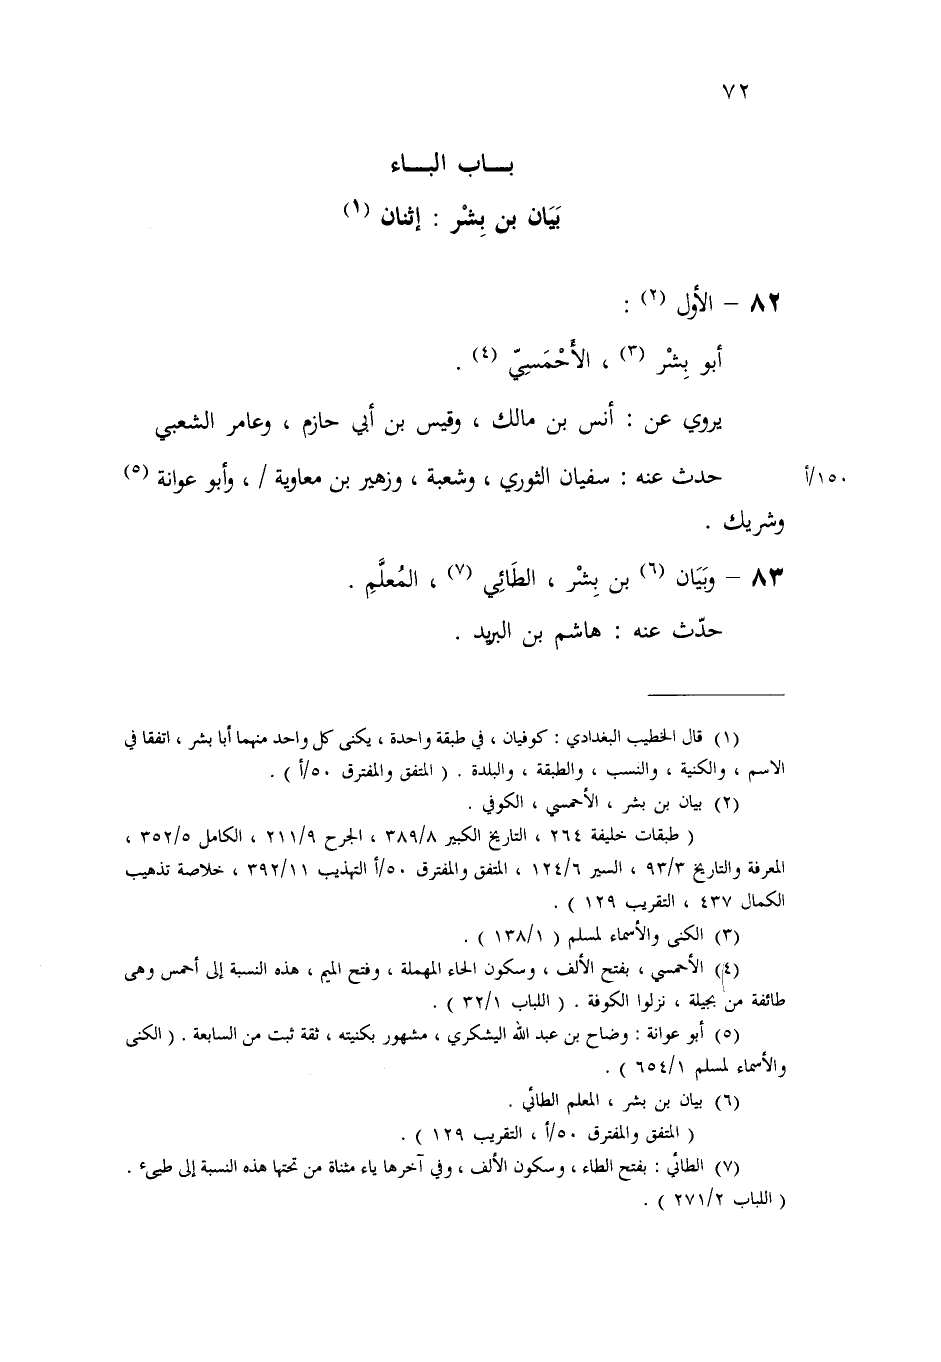 ٧٢
بـــاب البـــاء
بَيَان بن بِشْر : إثنان (١)
٨٢ – الأول (٢) :
أبو بِشْر (٣) ، الأَحْمَسِيّ (٤) .
يروي عن : أنس بن مالك ، وقيس بن أبي حازم ، وعامر الشعبي
حدث عنه : سفيان الثوري ، وشعبة ، وزهير بن معاوية / ، وأبو عوانة (٥)
١٥٠/أ
وشريك .
٨٣ – وبَيَان (٦) بن بِشْر ، الطَائِي (٧) ، المُعلَّمِ .
حدّث عنه : هاشم بن البريد .
(١) قال الخطيب البغدادي : كوفيان ، في طبقة واحدة ، يكنى كل واحد منهما أبا بشر ، اتفقا في
الاسم ، والكنية ، والنسب ، والطبقة ، والبلدة . ( المتفق والمفترق ٥٠/أ ) .
(٢) بيان بن بشر ، الأحمسي ، الكوفي .
( طبقات خليفة ٢٦٤ ، التاريخ الكبير ٣٨٩/٨ ، الجرح ٢١١/٩ ، الكامل ٣٥٢/٥ ،
المعرفة والتاريخ ٩٣/٣ ، السير ١٢٤/٦ ، المتفق والمفترق ٥٠/أ التهذيب ٣٩٢/١١ ، خلاصة تذهيب
الكمال ٤٣٧ ، التقريب ١٢٩ ) .
(٣) الكنى والأسماء لمسلم ( ١٣٨/١ ) .
(٤) الأحمسي ، بفتح الألف ، وسكون الحاء المهملة ، وفتح الميم ، هذه النسبة إلى أحمس وهى
طائفة من بجيلة ، نزلوا الكوفة . ( اللباب ٣٢/١ ) .
(٥) أبو عوانة : وضاح بن عبد الله اليشكري ، مشهور بكنيته ، ثقة ثبت من السابعة . ( الكنى
والأسماء لمسلم ٦٥٤/١ ) .
(٦) بيان بن بشر ، المعلم الطائي .
( المتفق والمفترق ٥٠/أ ، التقريب ١٢٩ ) .
(٧) الطائي : بفتح الطاء ، وسكون الألف ، وفي آخرها ياء مثناة من تحتها هذه النسبة إلى طيىء .
( اللباب ٢٧١/٢ ) .